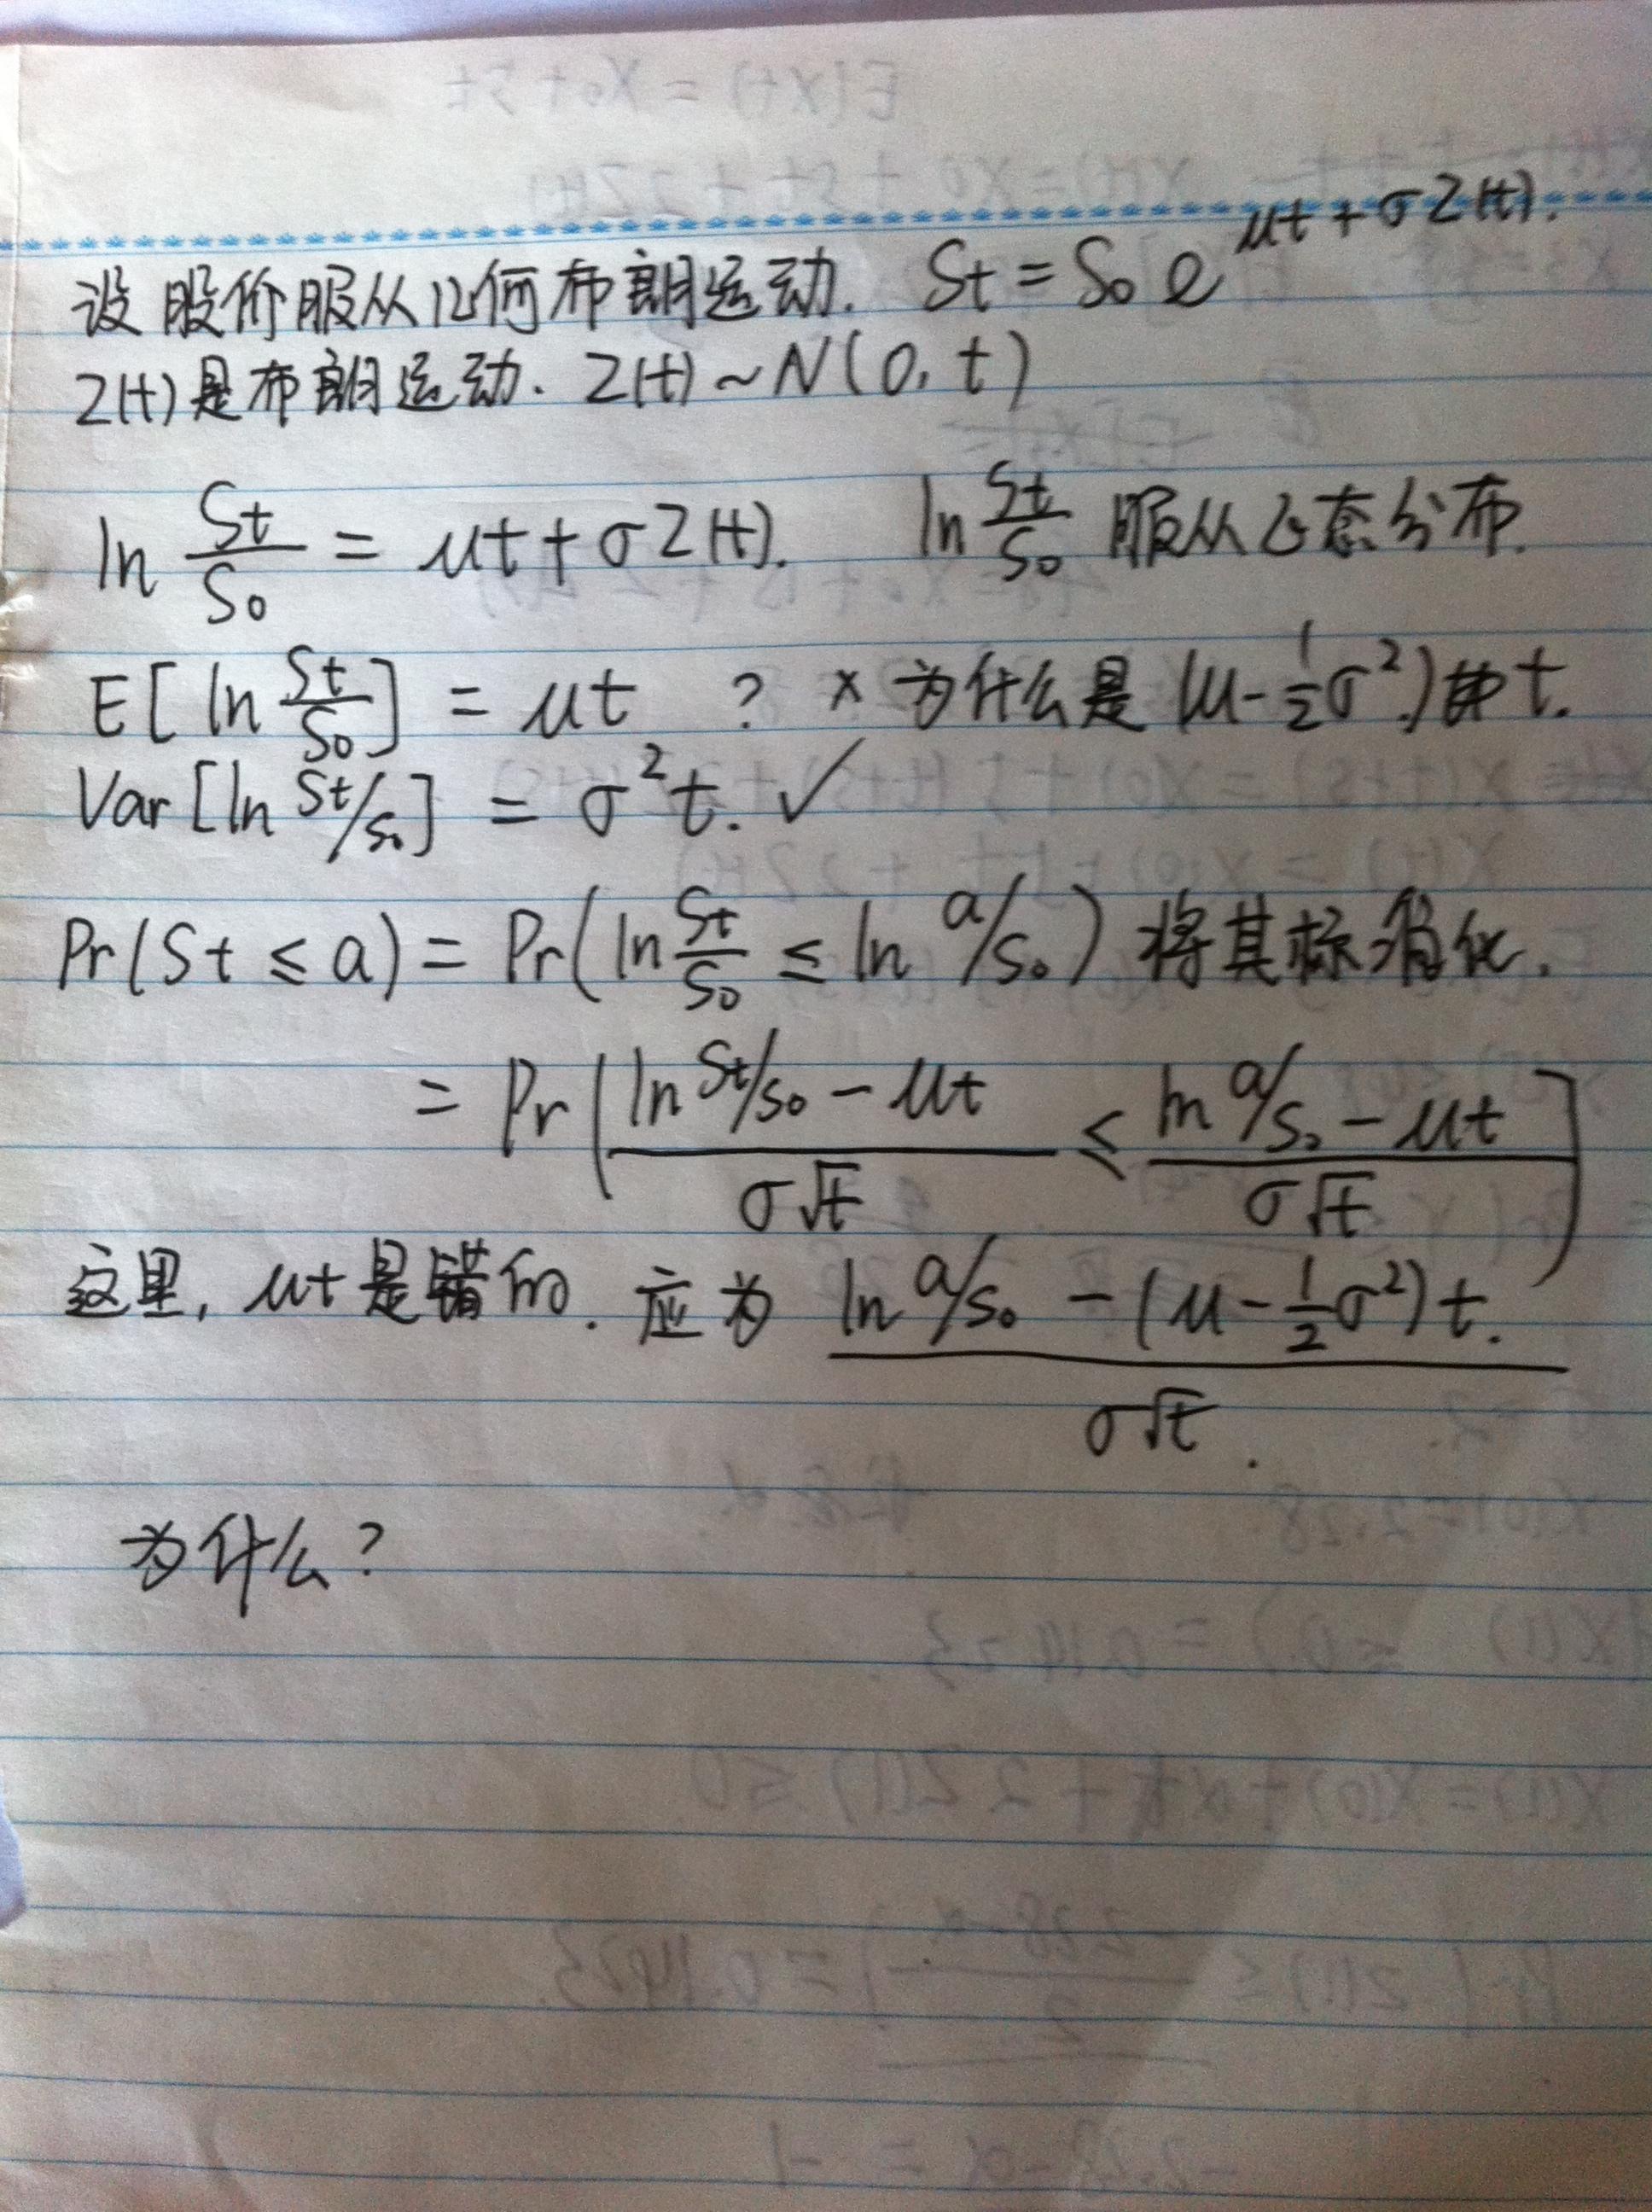 设股价服从几何布朗运动. St = S₀ e^{μt + σZ(t)}.
Z(t)是布朗运动. Z(t) ~ N(0, t)
ln St/S₀ = μt + σZ(t). ln St/S₀ 服从正态分布.
E[ln St/S₀] = μt ? × 为什么是 (μ - ½σ²) t.
Var[ln St/S₀] = σ²t. ✓
Pr(St ≤ a) = Pr(ln St/S₀ ≤ ln a/S₀) 将其标准化.
= Pr[(ln St/S₀ - μt)/(σ√t) ≤ (ln a/S₀ - μt)/(σ√t)]
这里, μt 是错的. 应为 (ln a/S₀ - (μ - ½σ²)t.)/(σ√t.)
为什么?